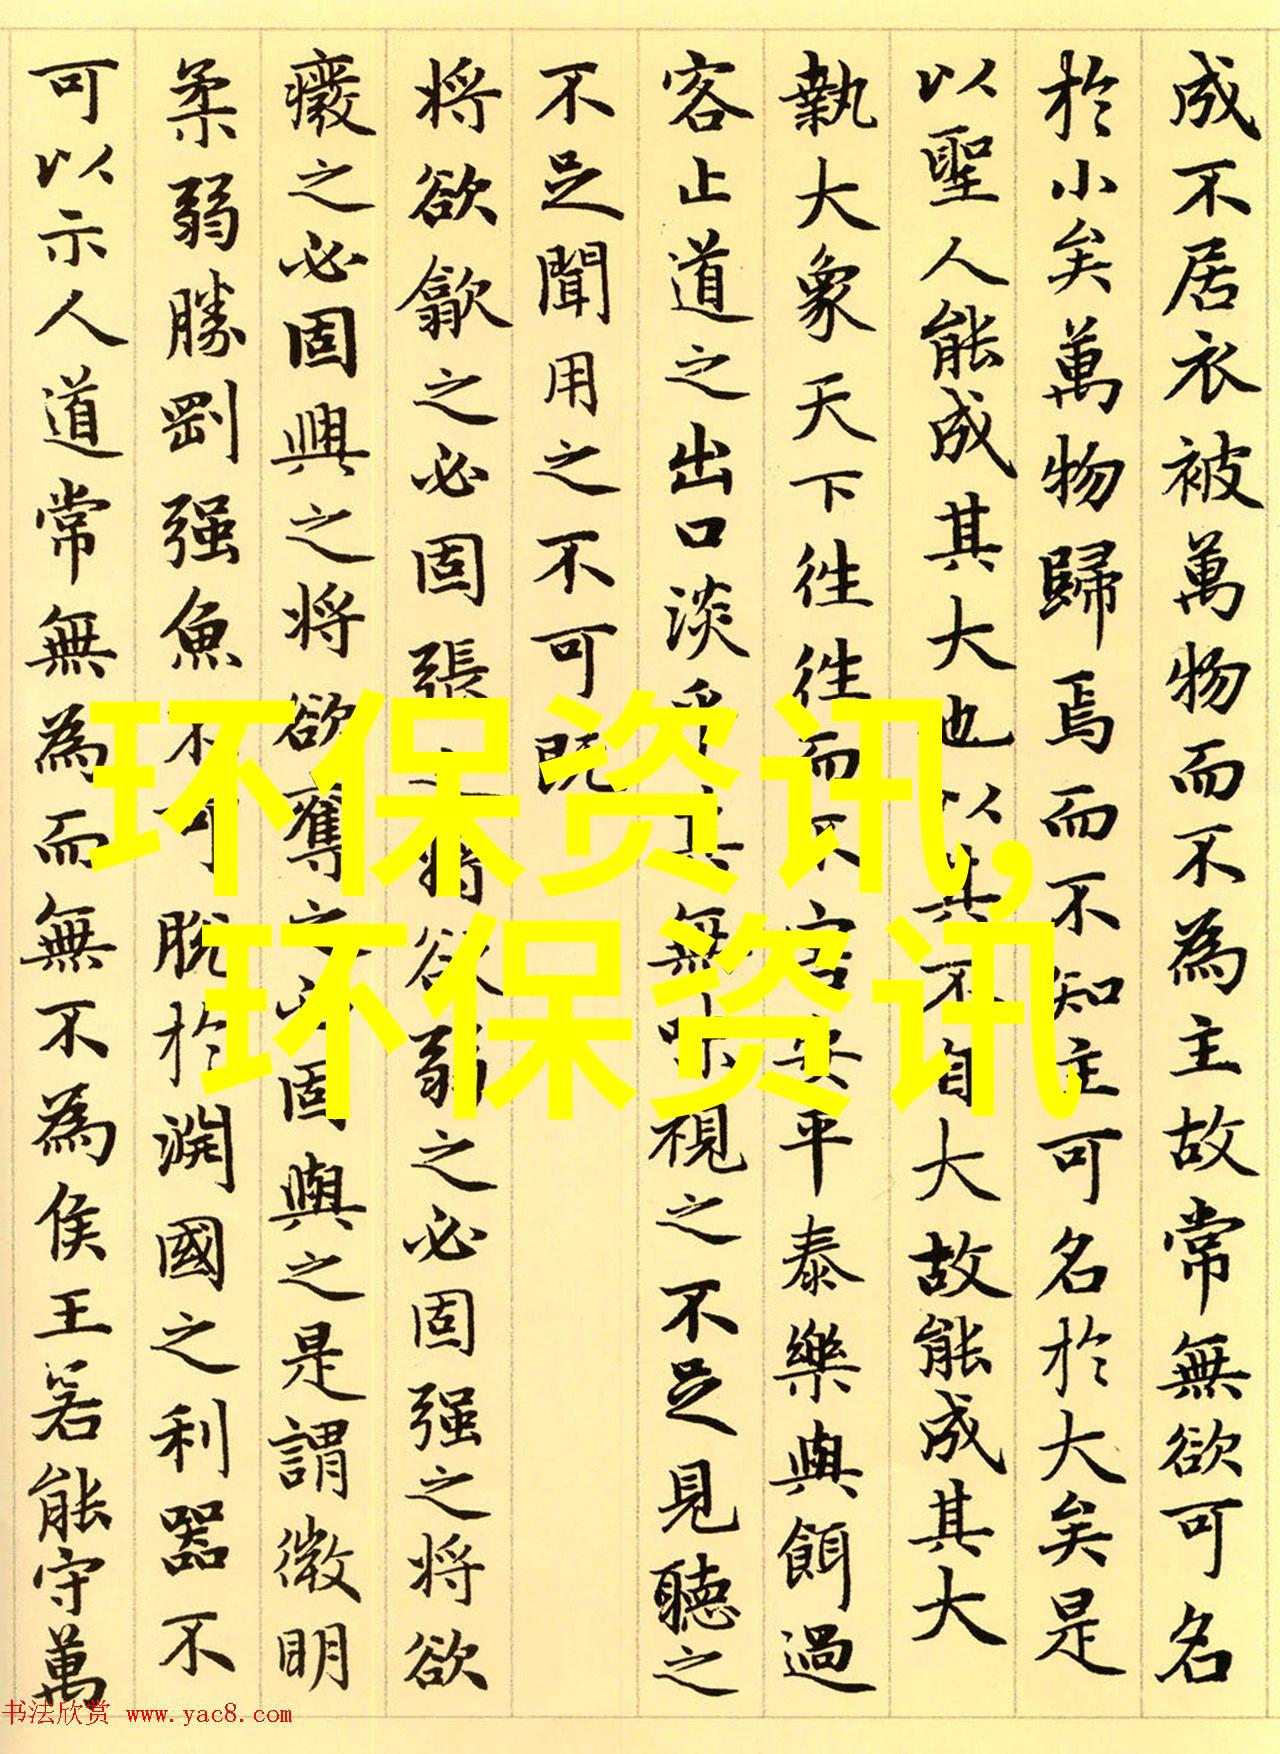 成不居衣被萬物而不為主故常無欲可名
於小矣萬物歸焉而不知主可名於大矣是
以聖人能成其大也以其不自大故能成其大
執大象天下徃徃而不害安平泰樂與餌過
客止道之出口淡乎其無味視之不足見聽之
不足聞用之不可既
将欲歙之必固張之将欲弱之必固强之将欲
癈之必固興之将欲奪之必固與之是謂微明
柔弱勝剛强魚不可脫於淵國之利器不
可以示人道常無為而無不為侯王若能守萬
环保资讯,
环保资讯
书法欣赏 www.yac8.com